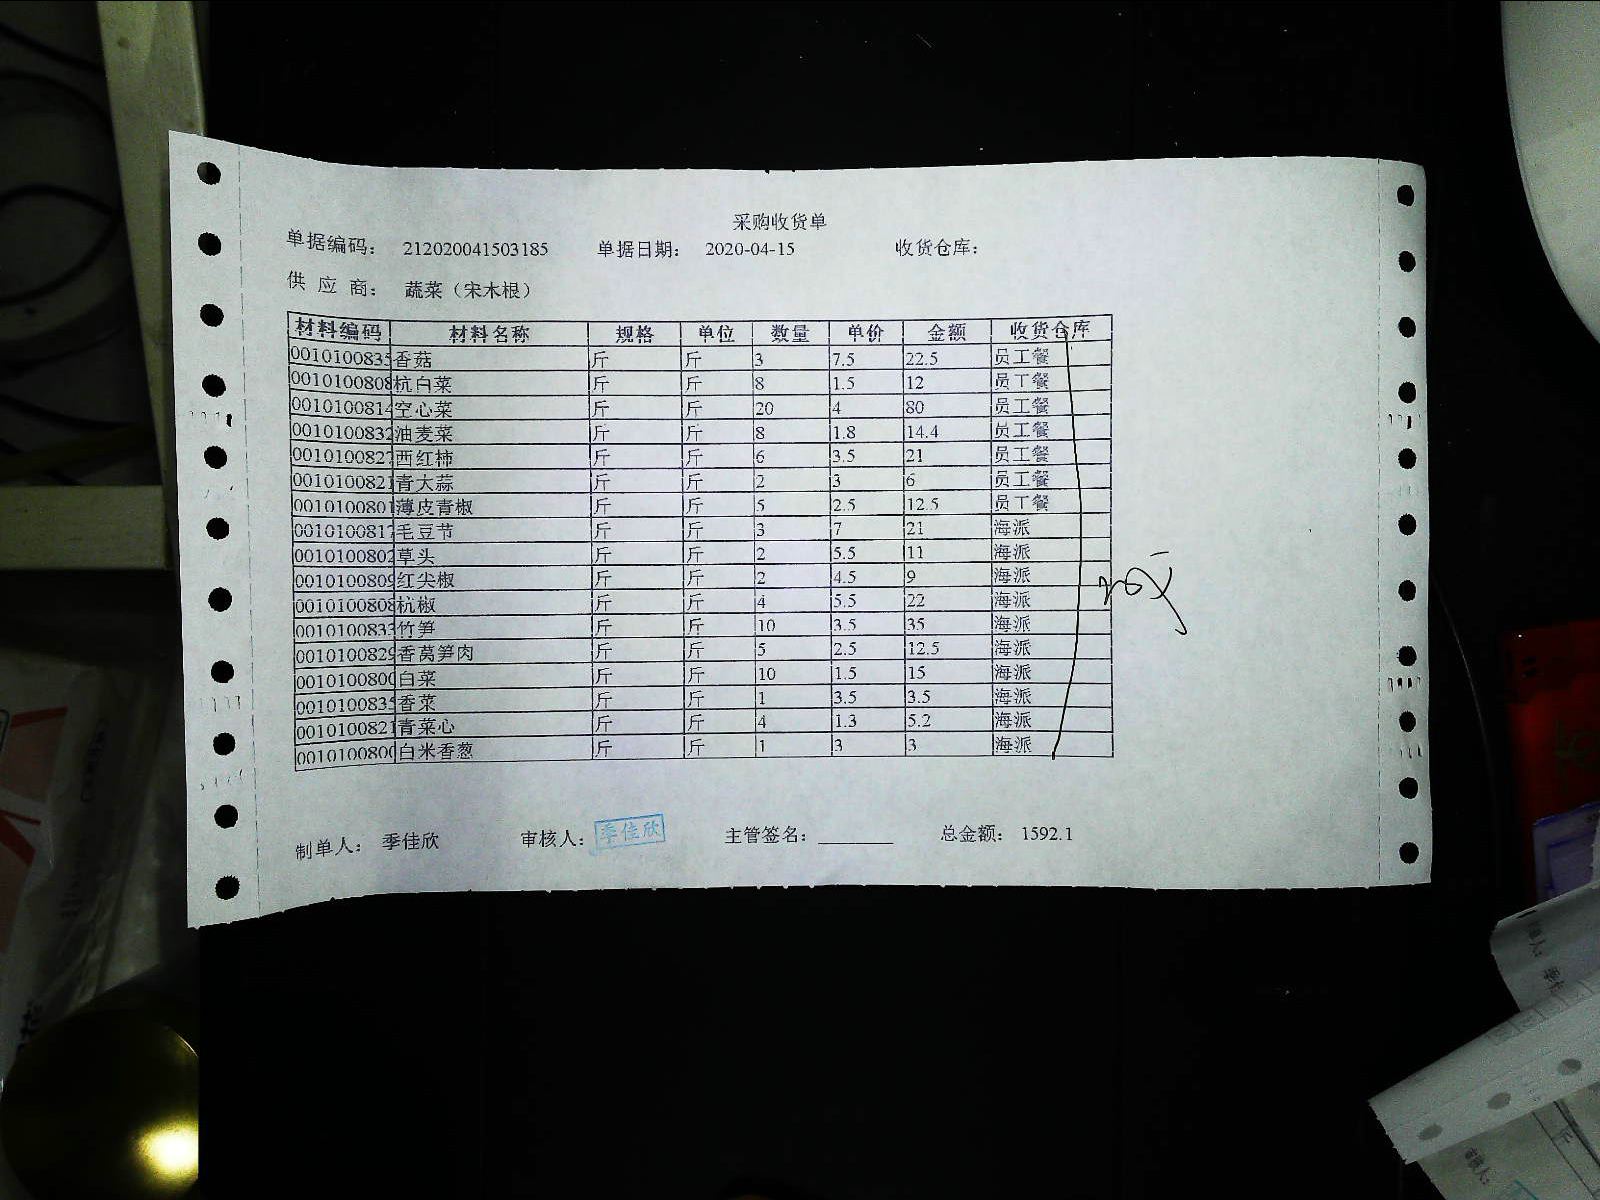 采购收货单
单据编码： 212020041503185 单据日期： 2020-04-15 收货仓库：
供 应 商： 蔬菜（宋木根）
材料编码 材料名称 规格 单位 数量 单价 金额 收货仓库
0010100835 香菇 斤 斤 3 7.5 22.5 员工餐
0010100808 杭白菜 斤 斤 8 1.5 12 员工餐
0010100814 空心菜 斤 斤 20 4 80 员工餐
0010100832 油麦菜 斤 斤 8 1.8 14.4 员工餐
0010100827 西红柿 斤 斤 6 3.5 21 员工餐
0010100821 青大蒜 斤 斤 2 3 6 员工餐
0010100801 薄皮青椒 斤 斤 5 2.5 12.5 员工餐
0010100817 毛豆节 斤 斤 3 7 21 海派
0010100802 草头 斤 斤 2 5.5 11 海派
0010100809 红尖椒 斤 斤 2 4.5 9 海派
0010100808 杭椒 斤 斤 4 5.5 22 海派
0010100833 竹笋 斤 斤 10 3.5 35 海派
0010100829 香莴笋肉 斤 斤 5 2.5 12.5 海派
0010100800 白菜 斤 斤 10 1.5 15 海派
0010100835 香菜 斤 斤 1 3.5 3.5 海派
0010100821 青菜心 斤 斤 4 1.3 5.2 海派
0010100800 白米香葱 斤 斤 1 3 3 海派
制单人： 季佳欣 审核人： 季佳欣 主管签名： 总金额： 1592.1